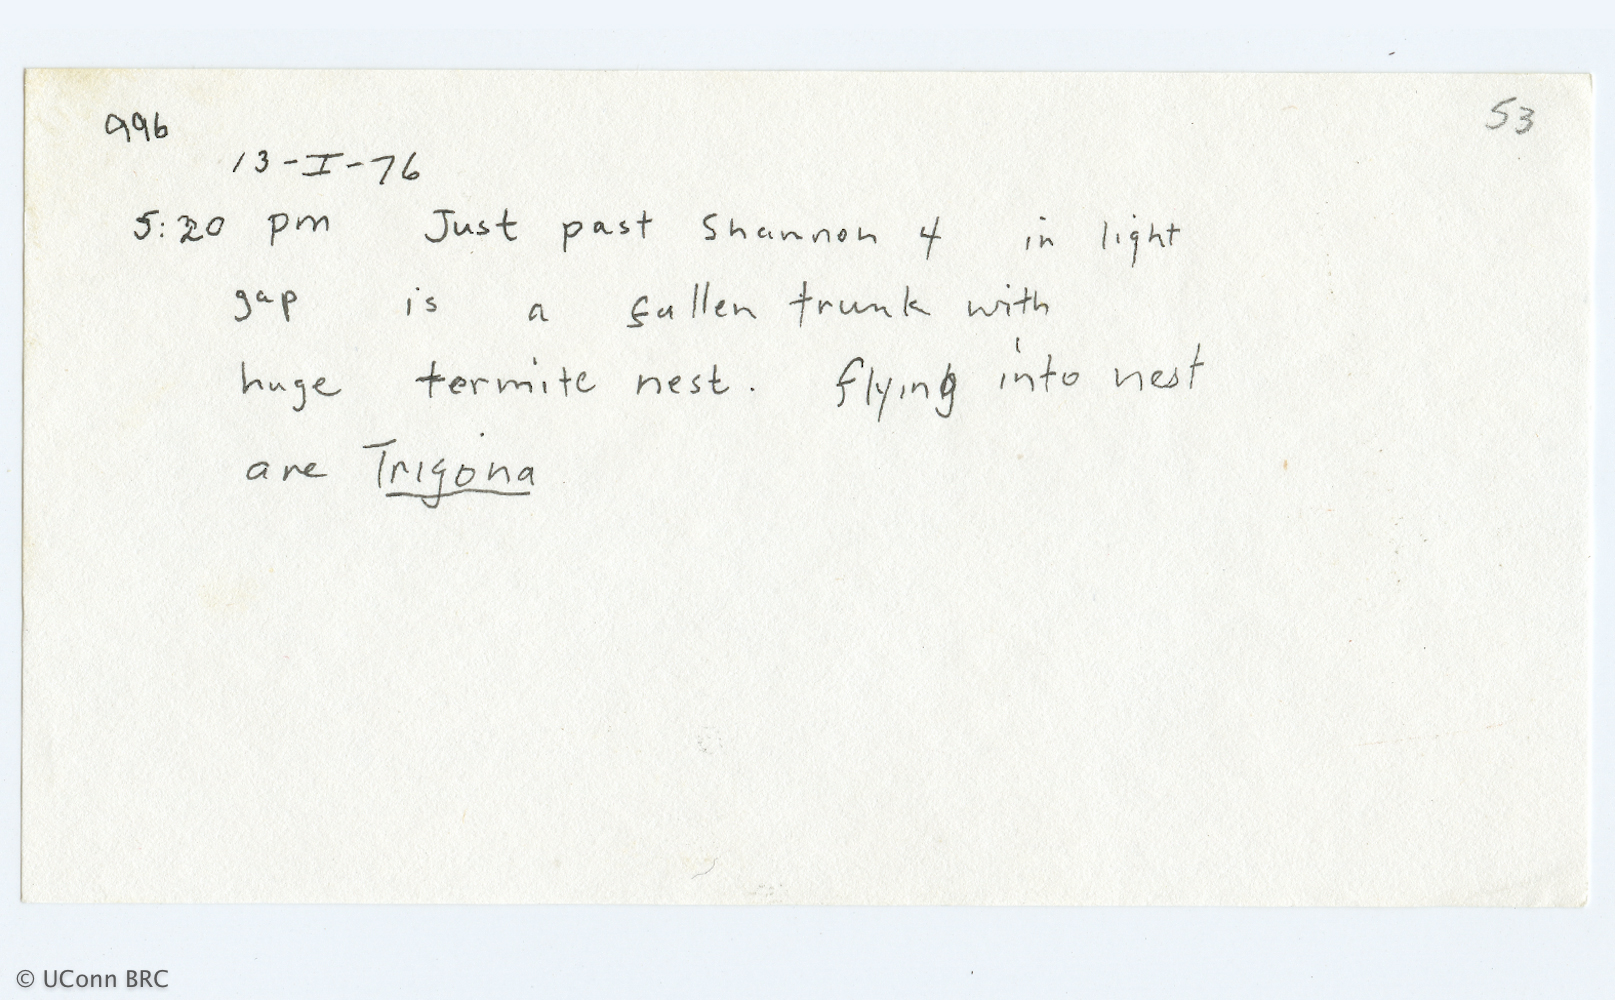 996
53
13-I-76
5:20 pm Just past Shannon 4 in light
gap is a fallen trunk with
huge termite nest. flying into nest
are Trigona
© UConn BRC